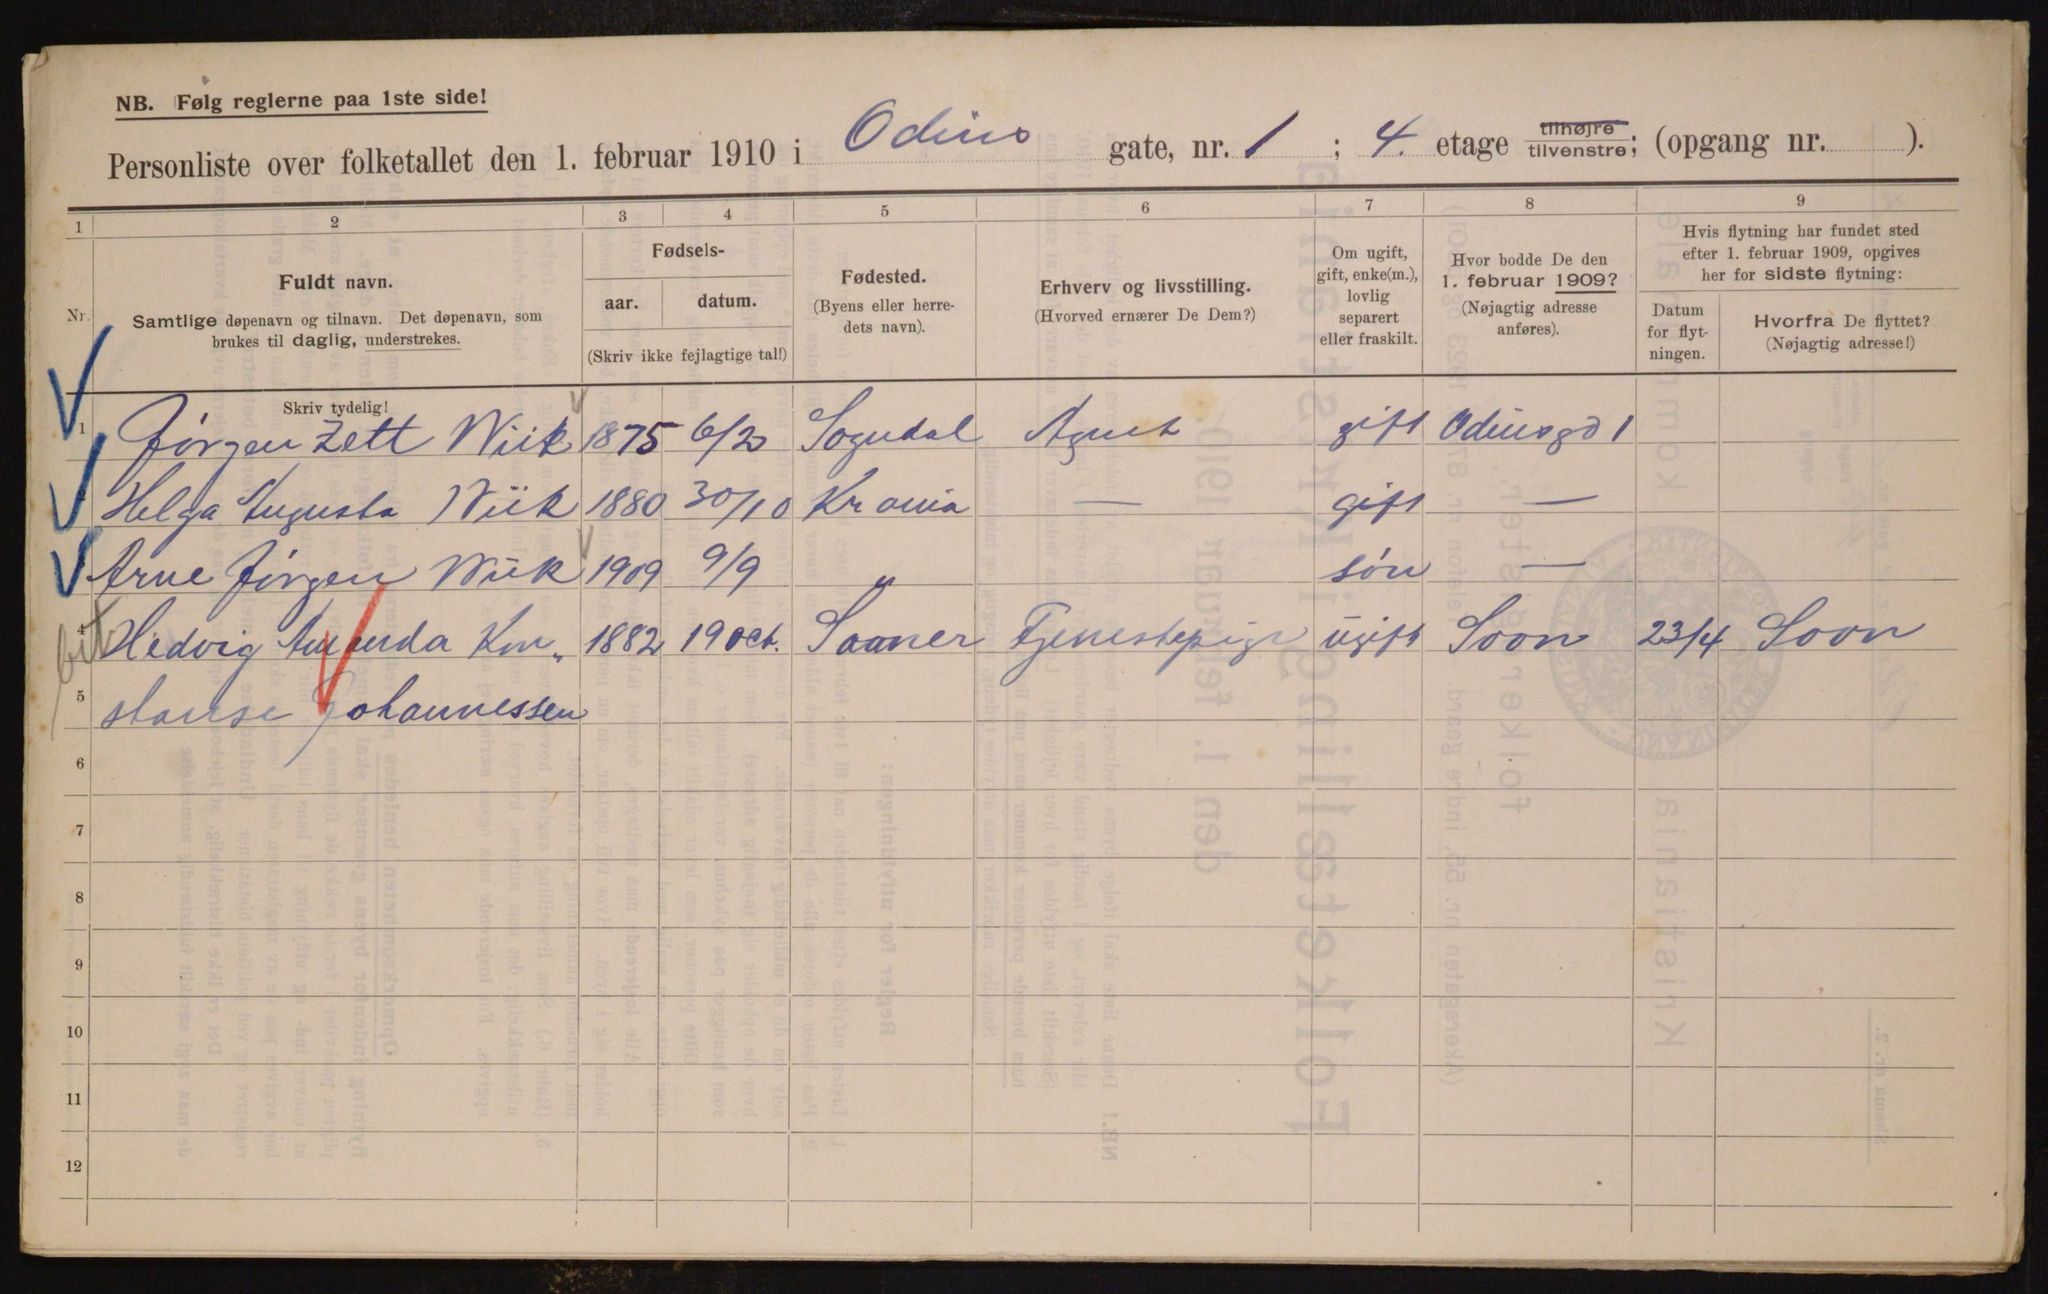 NB. Følg reglerne paa 1ste side!
Personliste over folketallet den 1. februar 1910 i Odins gate, nr. 1 ; 4. etage tilhøjre tilvenstre; (opgang nr. ).
1 2 3 4 5 6 7 8 9
Nr.
Fuldt navn.
Samtlige døpenavn og tilnavn. Det døpenavn, som
brukes til daglig, understrekes.
Fødsels-
aar. datum.
(Skriv ikke fejlagtige tal!)
Fødested.
(Byens eller herre-
dets navn).
Erhverv og livsstilling.
(Hvorved ernærer De Dem?)
Om ugift,
gift, enke(m.),
lovlig
separert
eller fraskilt.
Hvor bodde De den
1. februar 1909?
(Nøjagtig adresse
anføres).
Hvis flytning har fundet sted
efter 1. februar 1909, opgives
her for sidste flytning:
Datum
for flyt-
ningen.
Hvorfra De flyttet?
(Nøjagtig adresse!)
Skriv tydelig!
1 Jørgen Zett Wiik 1875 6/2 Sogndal Agent gift Odinsgd 1
Helga Augusta Wiik 1880 30/10 Krania — gift —
Arne Jørgen Wiik 1909 9/9 " søn —
4 Hedvig Amanda Kon„ 1882 19 oct. Saaner Tjenestepige ugift Soon 23/4 Soon
5 stanse Johannessen
6
7
8
9
10
11
12